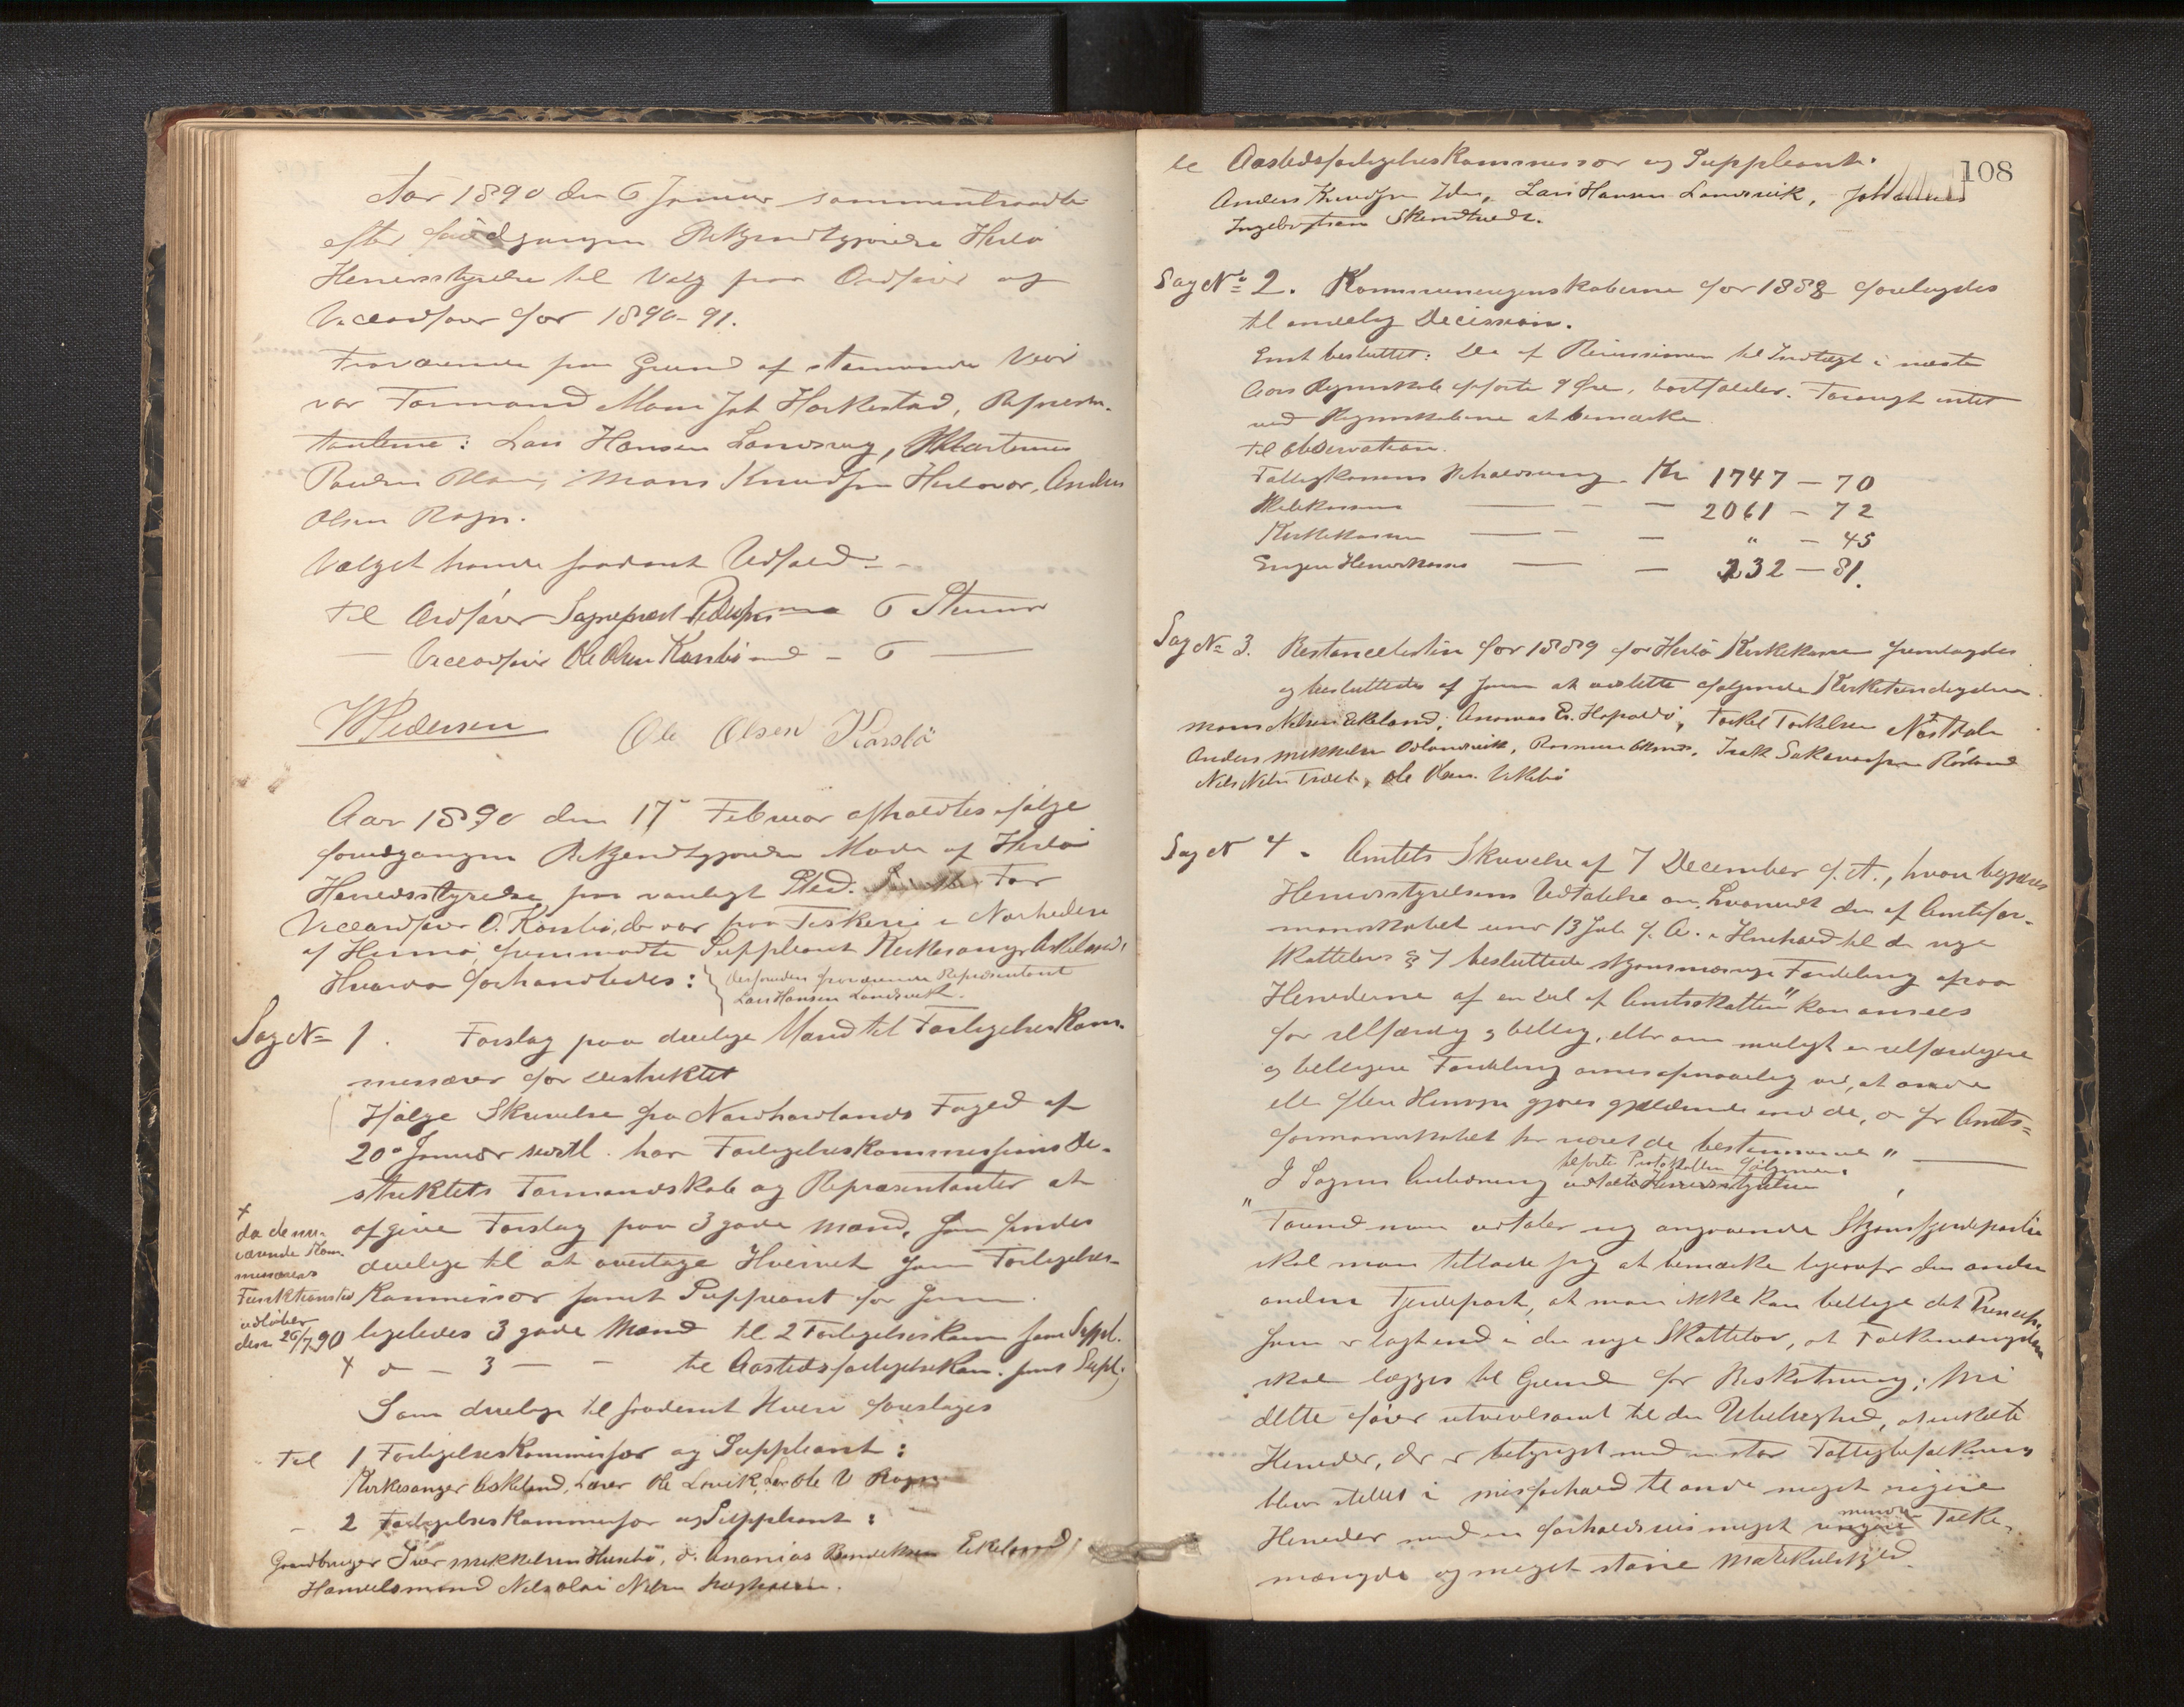 Aar 1890 den 6 Januar sammentraadte
efter forudgangen Bekjendtgjørelse Herlø
Herredsstyrelse til Valg paa Ordfører og
Viceordfører for 1890-91.
Fraværende paa Grund af stormende Veir
var Formand Mons Joh Horkestad, Repræsen-
tanterne: Lars Hansen Landsvig, Martinus
Mons Knudsen Herlevær, Anders
Olsen Rogn.
Valget havde saadant Udfald:
Til Ordfører Sognepræst Pedersen med 6 Stemmer
— Viceordfører Ole Olsen Karsbø med – 6 —
W Pedersen Ole Olsen Karsbø
Aar 1890 den 17de Februar afholdtes ifølge
forudgangen Bekjendtgjørelse Møde af Herlø
Herredsstyrelse paa vanligt Sted. For
Viceordfører O. Karsbø, der var paa Fiskeri i Nærheden
af Hennø, fremmødte Suppleant Kirkesanger Askeland,
Hvorda forhandledes: { desforuden fraværende Repræsentant
Lars Hansen Landsvik.
Sag No 1. Forslag paa duelige Mænd til Forligelseskom-
missærer for Distriktet
Ifølge Skrivelse fra Nordhordlands Foged af
20de Januar sidstl. har Forligelseskommissions Di-
striktets Formandskab og Repræsentanter at
afgive Forslag paa 3 gode Mænd, som findes
duelige til at overtage Hvervet som Forligelses-
Kommissær samt Suppleant for samme.
ligeledes 3 gode Mænd til 2 Forligelseskom samt Suppl.
x d — 3 — – til Aastedsforligelseskom. samt Supl.
x
da de nu-
værende Kom-
missærers
Funktionstid
udløber
den 26/7 90
Som duelige til saadant Hverv foreslages
Til 1 Forligelseskommissær og Suppleant:
Kirkesanger Askeland, Lærer Ole Lovik, Ole O Rogn
– 2 Forligelseskommissær og Suppleant:
Gaardbruger Iver Mikkelsen Husebø, d. Ananias Bendiksen Ekeland,
Handelsmand Nikolai Nilsen
108
til Aastedsforligelseskommissær og Suppleant.
Anders Knudsen Lars Hansen Landsvik, Johannes
Ingebrigtsen Skendtvedt.
Sag No 2. Kommuneregnskaberne for 1888 forelagdes
til endelig Decission.
Enst besluttet: De af Revisionen til Indtægt i næste
Aars Regnskab opførte 9 Øre, bortfalder. Forøvrigt intet
ved Regnskaberne at bemærke.
Til Observation.
Fattigkassens Beholdning Kr 1747 – 70
Skolekassens — – — 2061 – 72
Kirkekassen — – — " – 45
Herredskasse — — 232 – 81.
Sag No 3. Restancelisten for 1889 for Herlø Kirkekasse fremlagdes
og besluttedes af samme at udslette følgende Kirketiendeydere.
Mons Nilsen Ekeland, Ananias B. Hopaldø, Torkel Torkelsen Nøstdal
Anders Mikkelsen Rasmus Isak Sakariassen Rødland
Nils Nilsen Ole Olsen Uthbø
Sag No 4. Amtets Skrivelse af 7 December f. A., hvori begjæres
Herredsstyrelsens Udtalelse om, hvorvidt den af Amtsfor-
mandskabet under 13 Juli f. A. i Henhold til den nye
Skattelovs § 7 besluttede skjønsmæssige Fordeling paa
Herrederne af en Del af Amtsskatten" kan ansees
for retfærdig og billig, eller om muligt en retfærdigere
og billigere Fordeling ansees opnaaelig ved, at andre
eller flere Hensyn gjøres gjældende end de, der for Amts-
formandskabet har været de bestemmende" —
I Sagens Anledning udtalte Herredsstyrelsen
tilførte Protokollen følgende:
"Forend man udtaler sig angaaende Skjønsfjerdeparten
skal man tillade sig at bemærke ligeoverfor den anden
anden Fjerdepart, at man ikke kan billige det Princip,
som er lagt ind i den nye Skattelov, at Folkemængden
skal lægges til Grund for Beskatning; thi
dette fører utvivlsomt til den Ubillighed, at enkelte
Herreder, der er betynget med en stor Fattigbefolkning
blive stillet i Misforhold til andre meget rigere
Herreder med en forholdsvis meget ringere mindre Folke-
mængde og meget større Matrikulskyld.